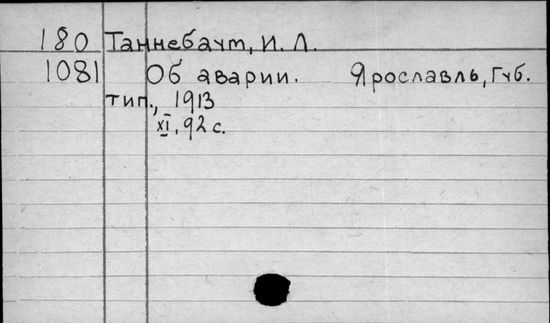 180 Таннебаут, И. Л.
1081 Об аварии. Ярославль, Губ.
тип., 1913
XI, 92 с.